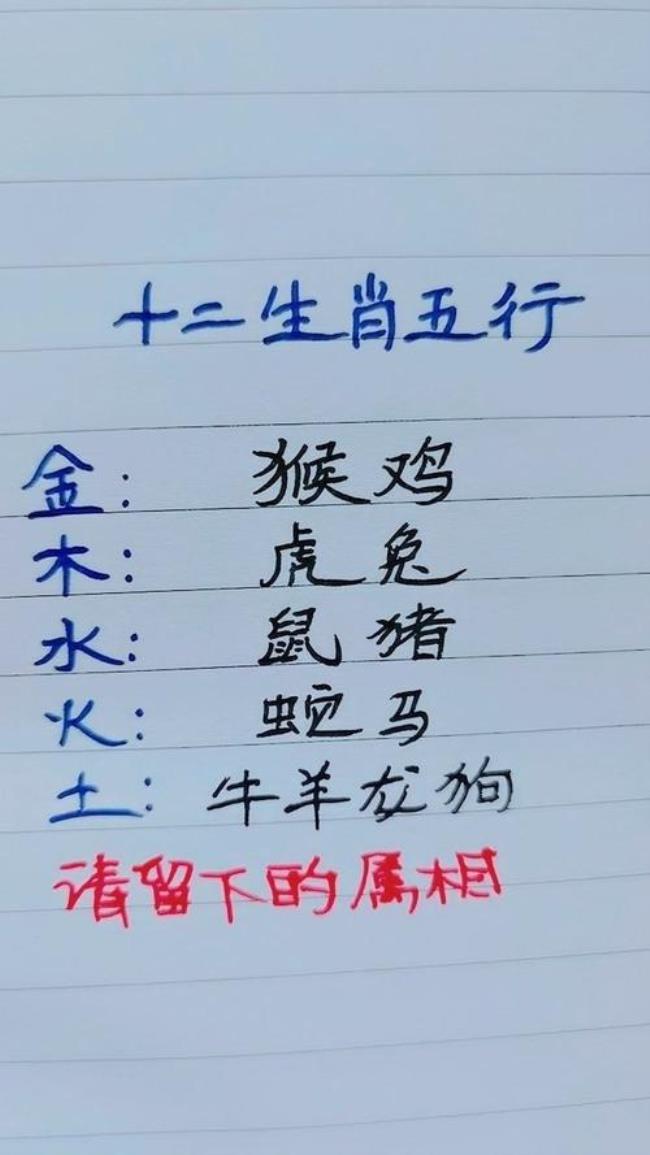 十二生肖五行
金: 猴鸡
木: 虎兔
水: 鼠猪
火: 蛇马
土: 牛羊龙狗
请留下的属相